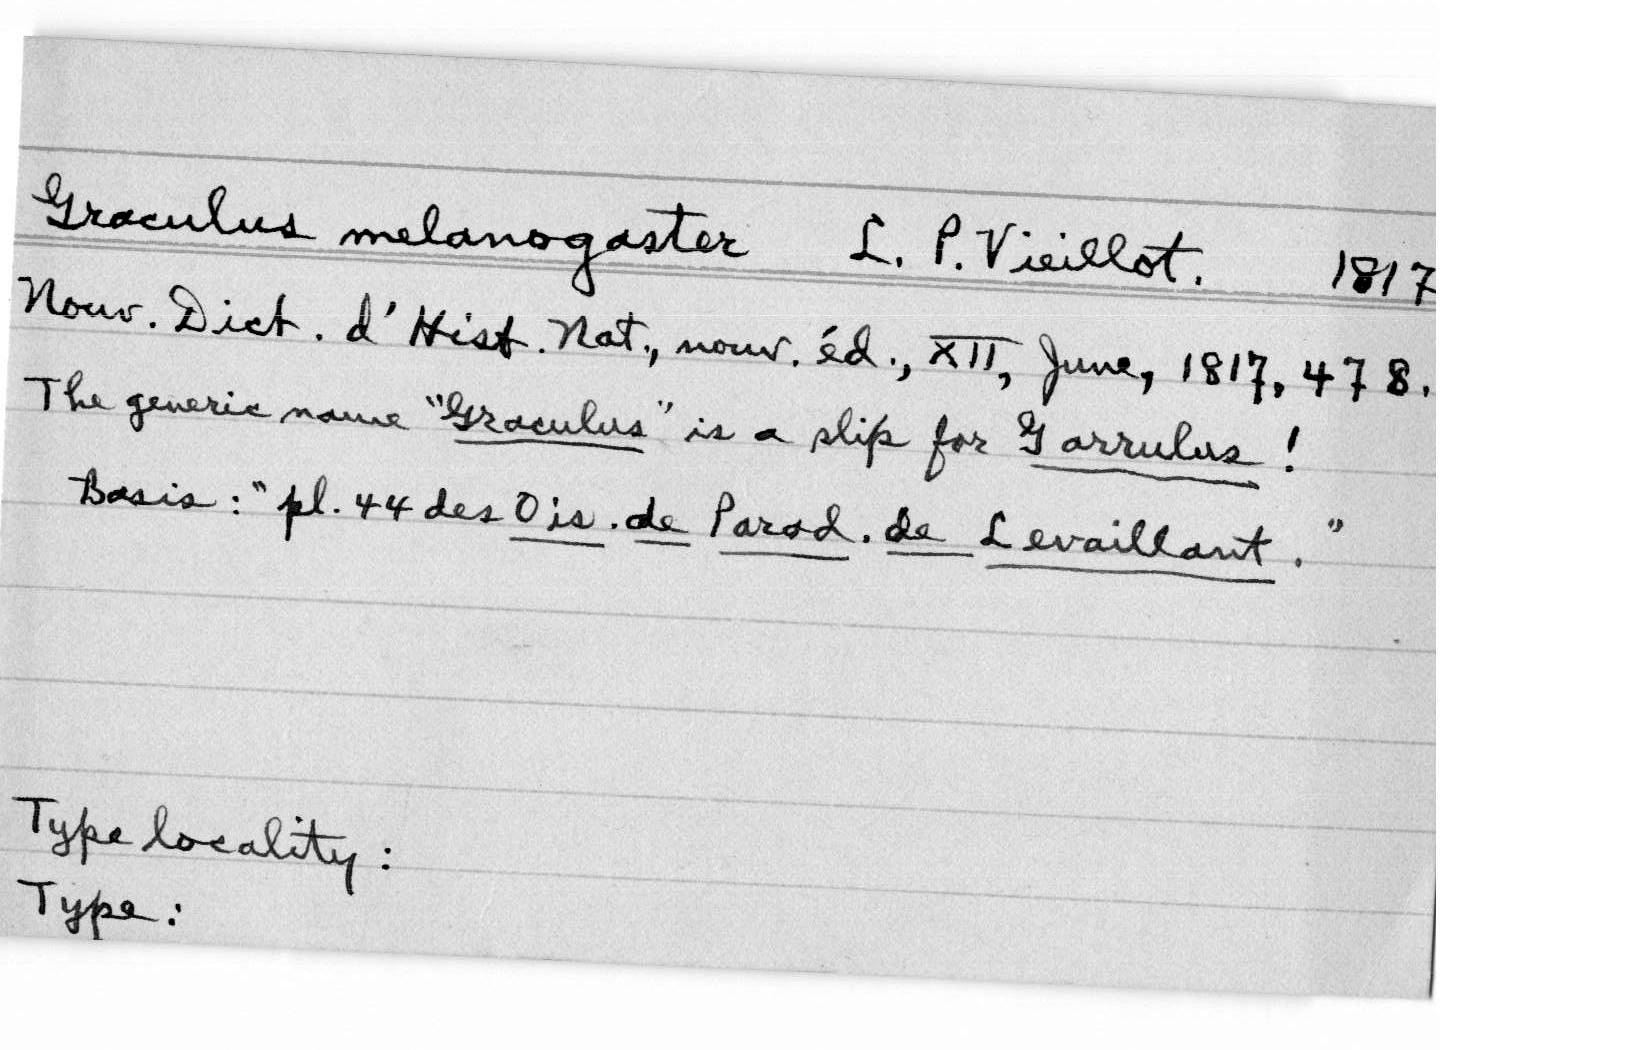 Graculus melanogaster L. P. Vieillot. 1817
Nouv. Dict. d'Hist. Nat., nouv. éd., XII, June, 1817, 478.
The generic name "Graculus" is a slip for Garrulus!
Basis: "pl. 44 des Ois. de Parad. de Levaillant."
Type locality:
Type: